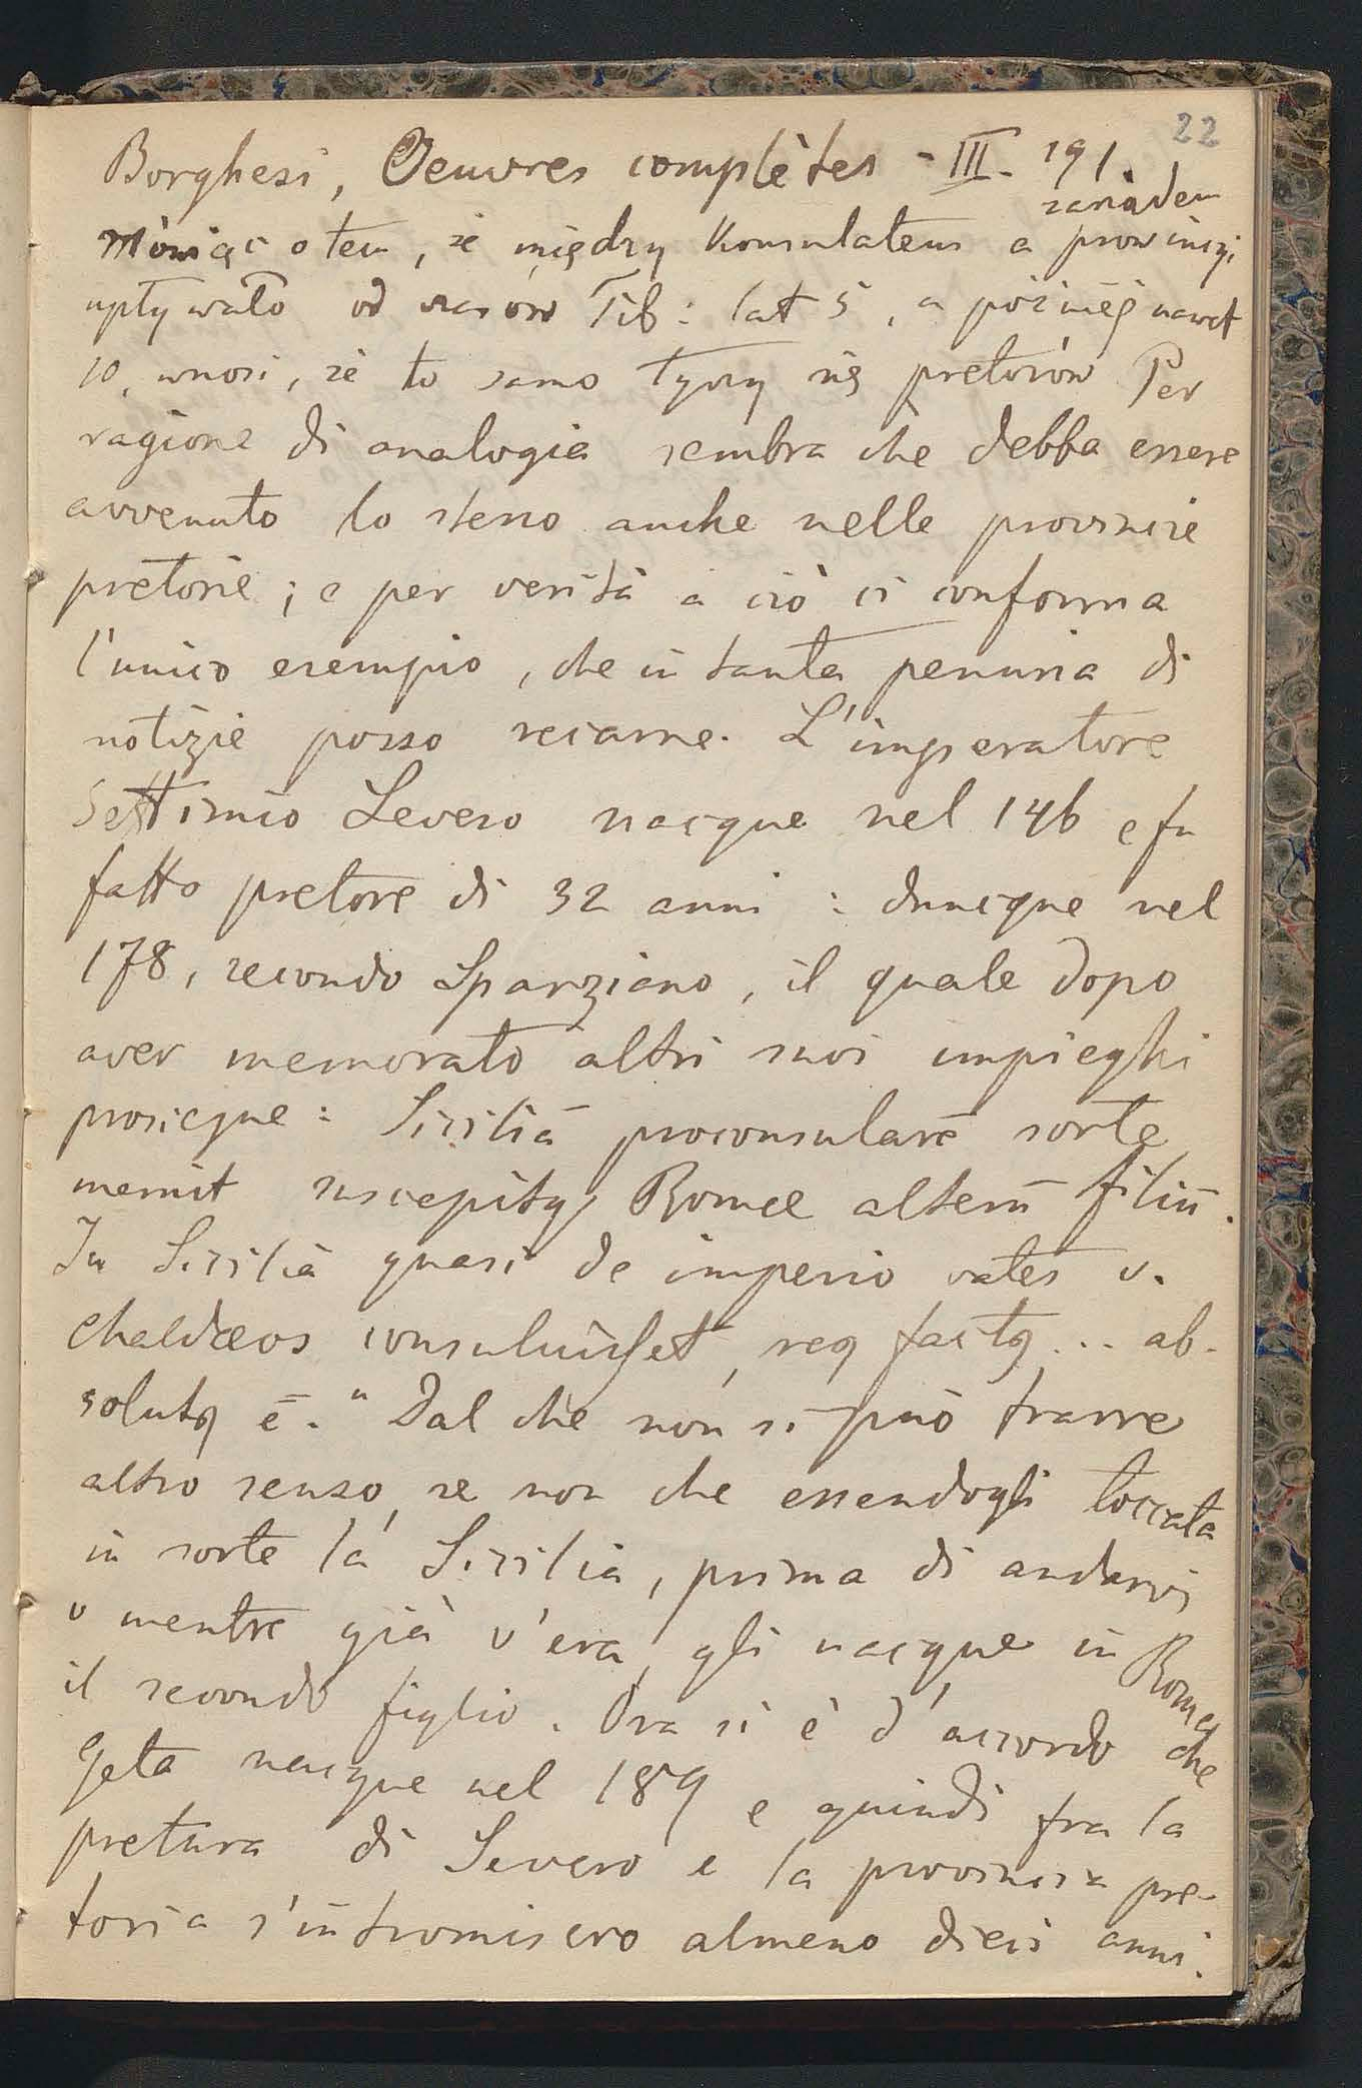 22
Borghesi, Oeuvres complètes - III. 191.
zarządem
Mówiąc o tem, że między Konsulatem a prowincyi
upływało od czasów Tib: lat 5, a później nawet
10, wnosi, że to samo tyczy się pretorów Per
ragione di analogia sembra che debba essere
avvenuto lo stesso anche nelle provincie
pretorie; e per verità a ciò ci conforma
l'unico esempio, che in tanta penuria di
notizie posso recarne. L'imperatore
Settimio Severo nacque nel 146 e fu
fatto pretore di 32 anni: dunque nel
178, secondo Sparziano, il quale dopo
aver memorato altri suoi impieghi
prosiegue: Siciliā proconsularē sorte
meruit suscepitq Romae alterū filiū.
In Siciliā quasi de imperio vates v.
Chaldæos consuluisset, req factq ... ab-
solutq ē." Dal che non si può trarre
altro senso, se non che essendogli toccata
in sorte la Sicilia, prima di andarvi
o mentre già v'era, gli nacque in Roma
il secondo figlio. Ora si è d'accordo che
Geta nacque nel 189 e quindi fra la
pretura di Severo e la provincia pre-
toria s'intromisero almeno dieci anni.